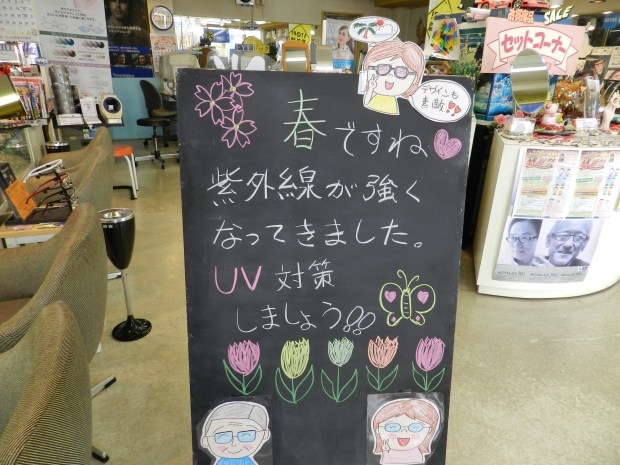 デザインも
素敵!!
春ですね
紫外線が強く
なってきました。
UV 対策
しましょう!!
SALE
セットコーナー